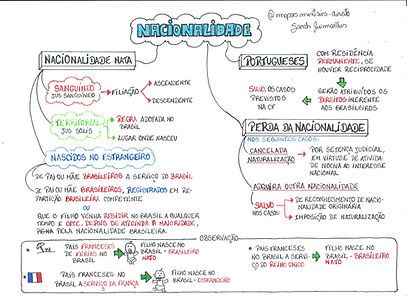 NACIONALIDADE
@mapasmentais.direito
Sarah Guimarães
NACIONALIDADE NATA
SANGUÍNEO
JUS SANGUÍNEO
FILIAÇÃO
ASCENDENTE
DESCENDENTE
TERRITORIAL
JUS SOLIS
REGRA ADOTADA NO
BRASIL
LUGAR ONDE NASCEU
NASCIDOS NO ESTRANGEIRO
DE PAI OU MÃE BRASILEIROS A SERVIÇO DO BRASIL
DE PAI OU MÃE BRASILEIROS, REGISTRADOS EM RE-
PARTIÇÃO BRASILEIRA COMPETENTE
OU
QUE O FILHO VENHA RESIDIR NO BRASIL A QUALQUER
TEMPO E OPTE, DEPOIS DE ATINGIDA A MAIORIDADE,
PELA NACIONALIDADE BRASILEIRA
PORTUGUESES
COM RESIDÊNCIA
PERMANENTE, SE
HOUVER RECIPROCIDADE
SERÃO ATRIBUÍDOS OS
DIREITOS INERENTE
AOS BRASILEIROS
SALVO OS CASOS
PREVISTOS
NA CF
PERDA DA NACIONALIDADE
NOS SEGUINTES CASOS:
CANCELADA
NATURALIZAÇÃO
POR SETENÇA JUDICIAL,
EM VIRTUDE DE ATIVIDA-
DE NOCIVA AO INTERESSE
NACIONAL
ADQUIRA OUTRA NACIONALIDADE
SALVO
NOS CASOS:
DE RECONHECIMENTO DE NACIO-
NALIDADE ORIGINÁRIA
IMPOSIÇÃO DE NATURALIZAÇÃO
OBSERVAÇÃO
PAIS FRANCESES
DE FÉRIAS NO
BRASIL
FILHO NASCE NO
BRASIL = BRASILEIRO
NATO
PAIS FRANCESES NO
BRASIL A SERVIÇO DA FRANÇA
FILHO NASCE NO
BRASIL = ESTRANGEIRO
PAIS FRANCESES
NO BRASIL A SERVI-
ÇO DO REINO UNIDO
FILHO NASCE NO
BRASIL = BRASILEIRO
NATO